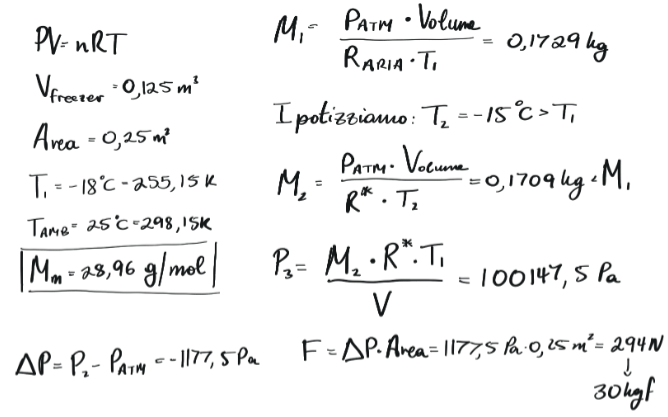 PV=nRT
V freezer = 0,125 m³
Area = 0,25 m²
T₁ = -18°C = 255,15 K
T AMB = 25°C = 298,15K
Mm = 28,96 g/mol
ΔP = P₂ - P ATM = -1177,5 Pa
M₁ = (P ATM · Volume) / (R ARIA · T₁) = 0,1729 kg
Ipotizziamo: T₂ = -15°C > T₁
M₂ = (P ATM · Volume) / (R* · T₂) = 0,1709 kg < M₁
P₃ = (M₂ · R* · T₁) / V = 100147,5 Pa
F = ΔP · Area = 1177,5 Pa · 0,25 m² = 294N
↓
30 kgf